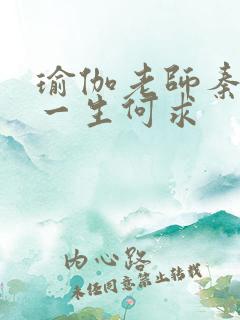 瑜伽老師秦
一生何求
內心路
未經同意禁止轉載